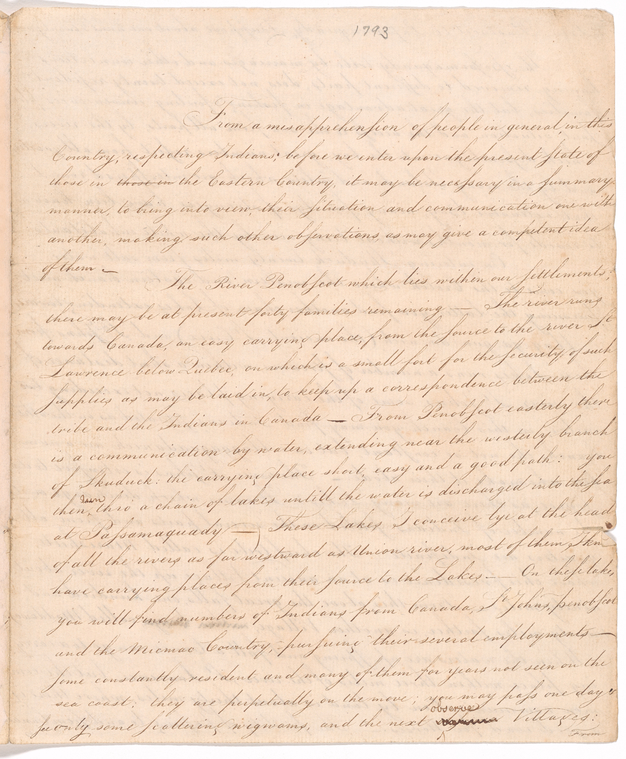 1793
From a mesapprehension of people in general in this
Country, respecting Indians; before we enter upon the present state of
those in those in the Eastern Country, it may be necessary in a summary
manner, to bring into view, their situation and communication one with
another, making such other observations, as may give a competent idea
of them —
The River Penobscot which lies within our settlements,
there may be at present forty families remaining — The river runs
towards Canada, an easy carrying place, from the source to the river St
Lawrence below Quebec, on which is a small fort for the security of such
supplies as may be laid in, to keep up a correspondence between the
tribe and the Indians in Canada — From Penobscot easterly there
is a communication by water, extending near the westerly branch
of Skuduck: the carrying place short, easy and a good path: you
then run thro a chain of lakes untill the water is discharged into the sea
at Passamaquady — These Lakes I conceive lye at the head
of all the rivers as far westward as Union river, most of them
have carrying places from their source to the Lakes — On these lakes
you will find numbers of Indians from Canada, St Johns, penobscot
and the Micmac Country, pursuing their several employments —
some constantly resident and many of them for years not seen on the
sea coast: they are perpetually on the move; you may pass one day &
see only some scattering wigwams, and the next observe Villages:
From